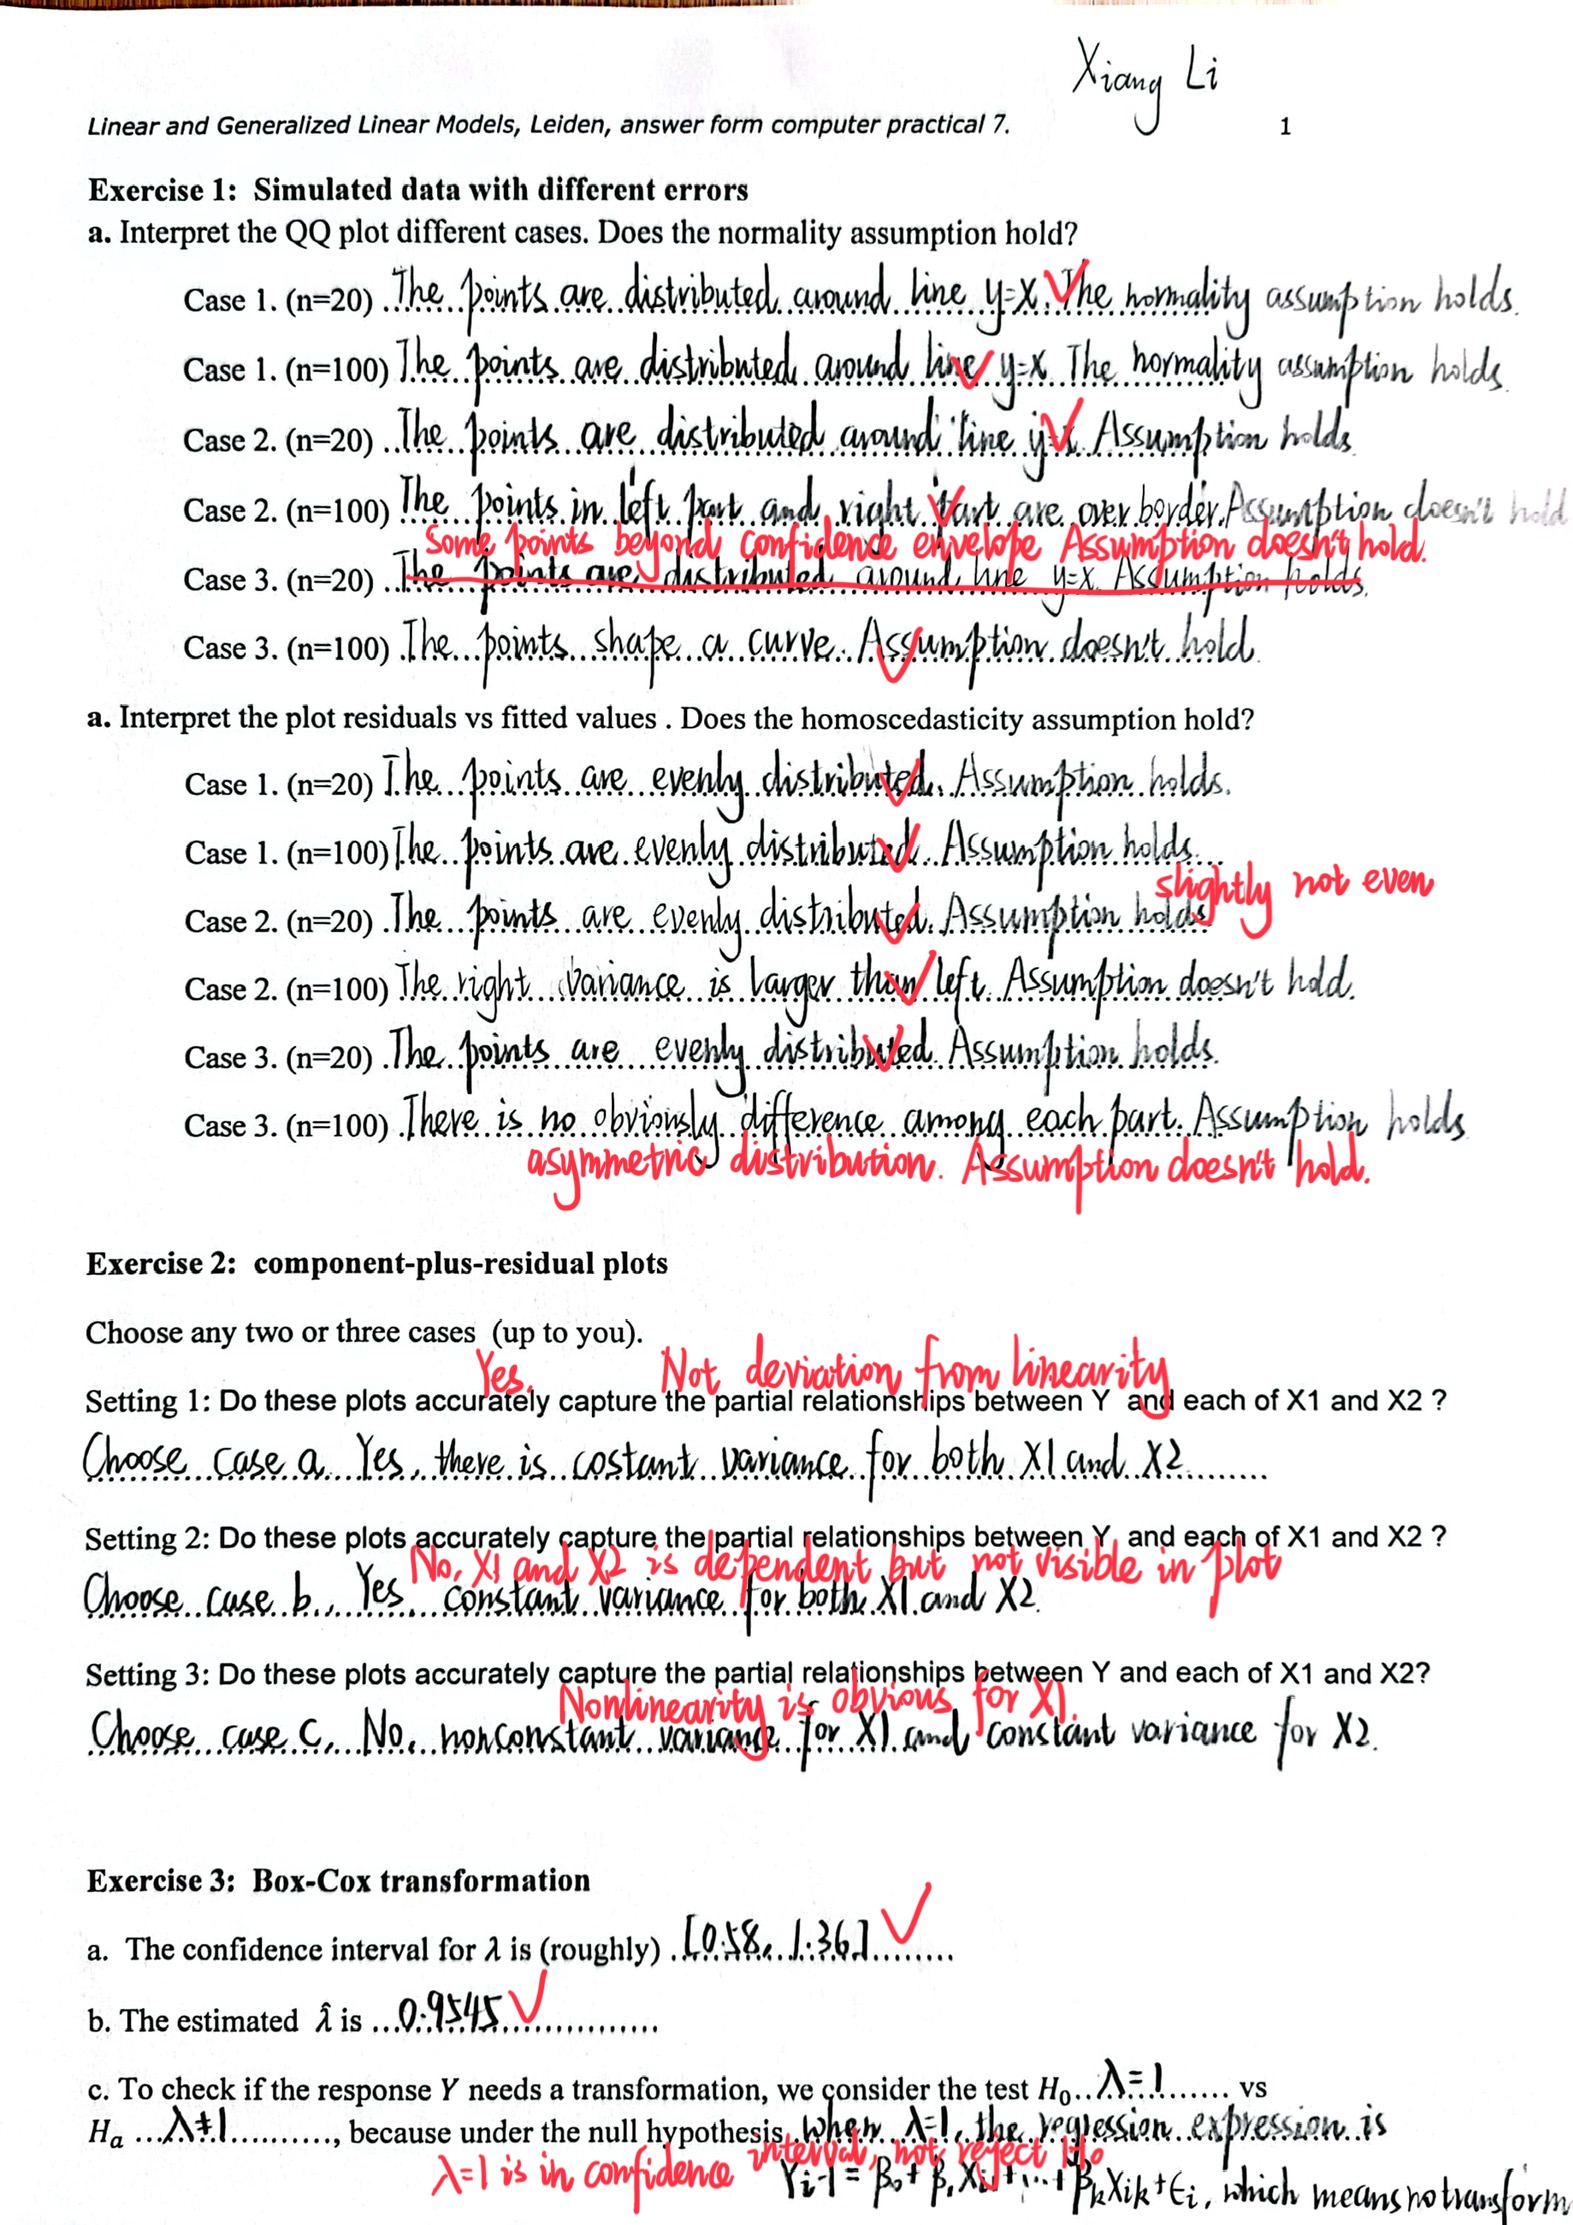 Xiang Li
Linear and Generalized Linear Models, Leiden, answer form computer practical 7. 1
Exercise 1: Simulated data with different errors
a. Interpret the QQ plot different cases. Does the normality assumption hold?
Case 1. (n=20) The points are distributed around line y=x. The normality assumption holds.
Case 1. (n=100) The points are distributed around line y=x. The normality assumption holds.
Case 2. (n=20) The points are distributed around line y=x. Assumption holds.
Case 2. (n=100) The points in left part and right part are over border. Assumption doesn't hold
Some points beyond confidence envelope Assumption doesn't hold.
Case 3. (n=20) The points are distributed around line y=x. Assumption holds.
Case 3. (n=100) The points shape a curve. Assumption doesn't hold.
a. Interpret the plot residuals vs fitted values . Does the homoscedasticity assumption hold?
Case 1. (n=20) The points are evenly distributed. Assumption holds.
Case 1. (n=100) The points are evenly distributed. Assumption holds.
slightly not even
Case 2. (n=20) The points are evenly distributed. Assumption holds
Case 2. (n=100) The right variance is larger than left. Assumption doesn't hold.
Case 3. (n=20) The points are evenly distributed. Assumption holds.
Case 3. (n=100) There is no obviously difference among each part. Assumption holds
asymmetric distribution. Assumption doesn't hold.
Exercise 2: component-plus-residual plots
Choose any two or three cases (up to you).
Yes. Not deviation from linearity
Setting 1: Do these plots accurately capture the partial relationships between Y and each of X1 and X2 ?
Choose case a. Yes, there is costant variance for both X1 and X2
Setting 2: Do these plots accurately capture the partial relationships between Y and each of X1 and X2 ?
No, X1 and X2 is dependent but not visible in plot
Choose case b., Yes constant variance for both X1 and X2.
Setting 3: Do these plots accurately capture the partial relationships between Y and each of X1 and X2?
Nonlinearity is obvious for X1.
Choose case C, No, nonconstant variance for X1 and constant variance for X2.
Exercise 3: Box-Cox transformation
a. The confidence interval for λ is (roughly) [0.58, 1.36]
b. The estimated λ̂ is ...0.9545
c. To check if the response Y needs a transformation, we consider the test H₀.. λ=1 ....... vs
Hₐ ...λ≠1.........., because under the null hypothesis when λ=1, the regression expression is
λ=1 is in confidence interval, not reject H₀
Yi-1 = β₀+ β₁Xi1+...+ βkXik+ϵi, which means no transform